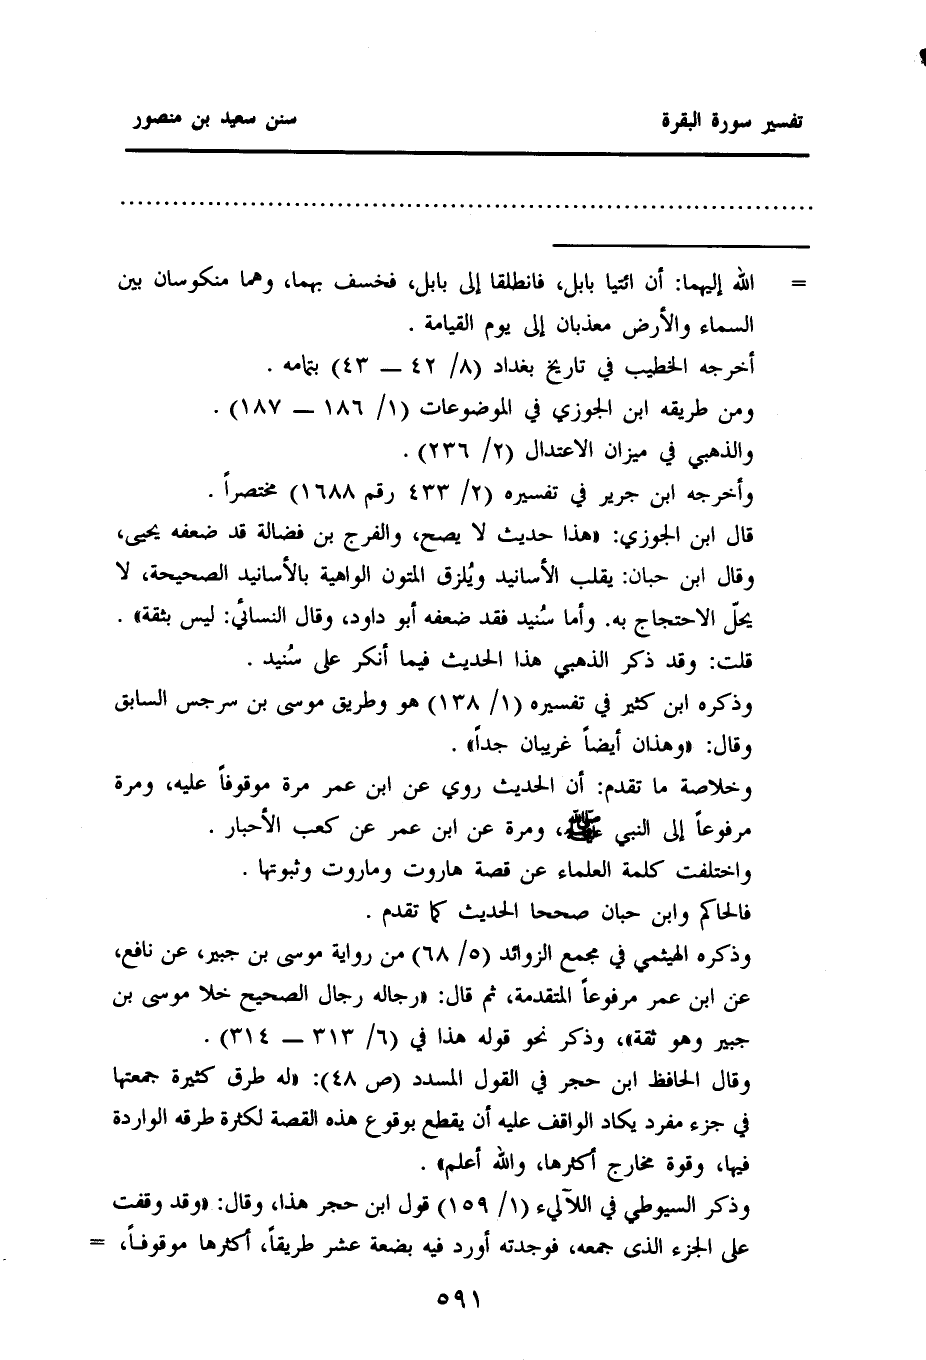 تفسير سورة البقرة سنن سعيد بن منصور
= الله إليهما: أن ائتيا بابل، فانطلقا إلى بابل، فخسف بهما، وهما منكوسان بين
السماء والأرض معذبان إلى يوم القيامة .
أخرجه الخطيب في تاريخ بغداد (٨/ ٤٢ — ٤٣) بتمامه .
ومن طريقه ابن الجوزي في الموضوعات (١/ ١٨٦ — ١٨٧) .
والذهبي في ميزان الاعتدال (٢/ ٢٣٦) .
وأخرجه ابن جرير في تفسيره (٢/ ٤٣٣ رقم ١٦٨٨) مختصراً .
قال ابن الجوزي: «هذا حديث لا يصح، والفرج بن فضالة قد ضعفه يحيى،
وقال ابن حبان: يقلب الأسانيد ويُلزق المتون الواهية بالأسانيد الصحيحة، لا
يحلّ الاحتجاج به. وأما سُنيد فقد ضعفه أبو داود، وقال النسائي: ليس بثقة» .
قلت: وقد ذكر الذهبي هذا الحديث فيما أنكر على سُنيد .
وذكره ابن كثير في تفسيره (١/ ١٣٨) هو وطريق موسى بن سرجس السابق
وقال: «وهذان أيضاً غريبان جداً» .
وخلاصة ما تقدم: أن الحديث روي عن ابن عمر مرة موقوفاً عليه، ومرة
مرفوعاً إلى النبي ﷺ، ومرة عن ابن عمر عن كعب الأحبار .
واختلفت كلمة العلماء عن قصة هاروت وماروت وثبوتها .
فالحاكم وابن حبان صححا الحديث كما تقدم .
وذكره الهيثمي في مجمع الزوائد (٥/ ٦٨) من رواية موسى بن جبير، عن نافع،
عن ابن عمر مرفوعاً المتقدمة، ثم قال: «رجاله رجال الصحيح خلا موسى بن
جبير وهو ثقة»، وذكر نحو قوله هذا في (٦/ ٣١٣ — ٣١٤) .
وقال الحافظ ابن حجر في القول المسدد (ص ٤٨): «له طرق كثيرة جمعتها
في جزء مفرد يكاد الواقف عليه أن يقطع بوقوع هذه القصة لكثرة طرقه الواردة
فيها، وقوة مخارج أكثرها، والله أعلم» .
وذكر السيوطي في اللآليء (١/ ١٥٩) قول ابن حجر هذا، وقال: «وقد وقفت
على الجزء الذى جمعه، فوجدته أورد فيه بضعة عشر طريقاً، أكثرها موقوفاً، =
٥٩١